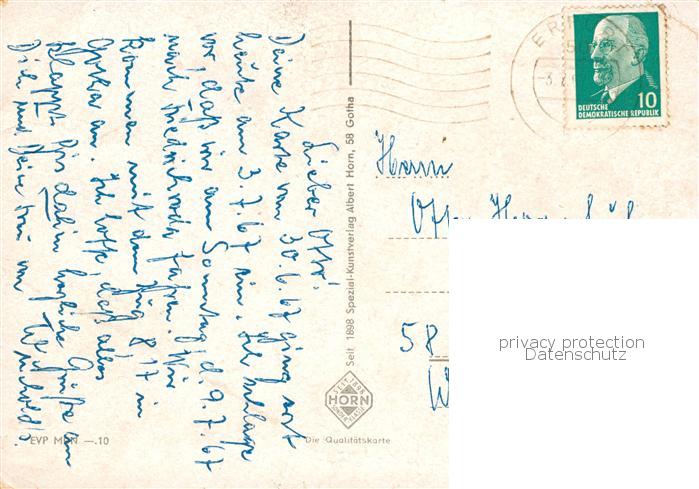 Lieber Otto!
Deine Karte vom 30.6.67 ging erst
heute am 3.7.67 ein. Ich schlage
vor, daß wir am Sonntag, d. 9.7.67
nach Friedrichroda fahren. Wir
kommen mit dem Zug 8,17 in
Gotha an. Ich hoffe, daß alles
klappt. Bis dahin herzliche Grüße an
Dich und Deine von
EVP MDN —.10
Seit 1898 Spezial-Kunstverlag Albert Horn, 58 Gotha
SEIT 1898
HORN
Die Qualitätskarte
DEUTSCHE
DEMOKRATISCHE REPUBLIK
10
Herrn
Otto
58
privacy protection
Datenschutz